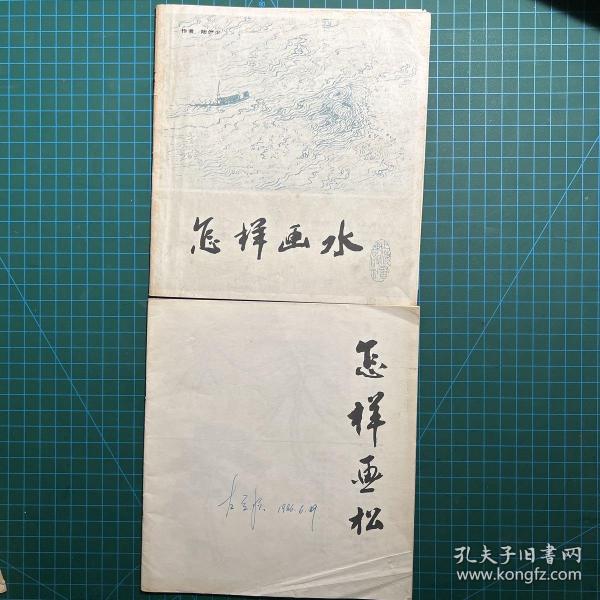 作者 陆俨少
怎样画水
怎样画松
1986.6.29
孔夫子旧書网
www.kongfz.com